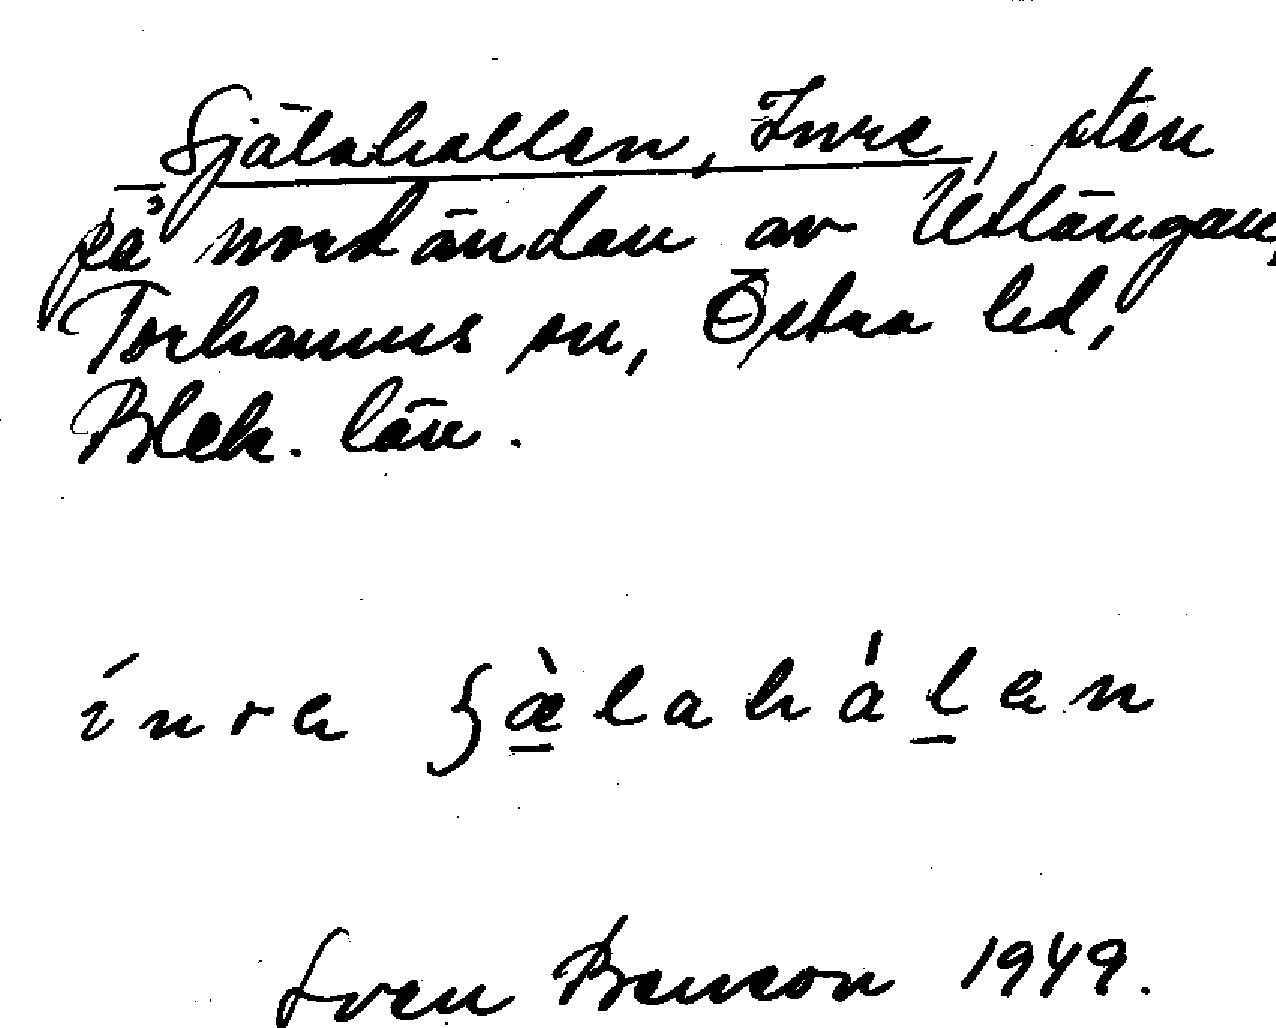 Själahallen, Inre, sten
på nordändan av Utlängan,
Torhamns sn, Östra hd,
Blek. län.
ínre ʒæ̀lahálen
Sven Benson 1949.